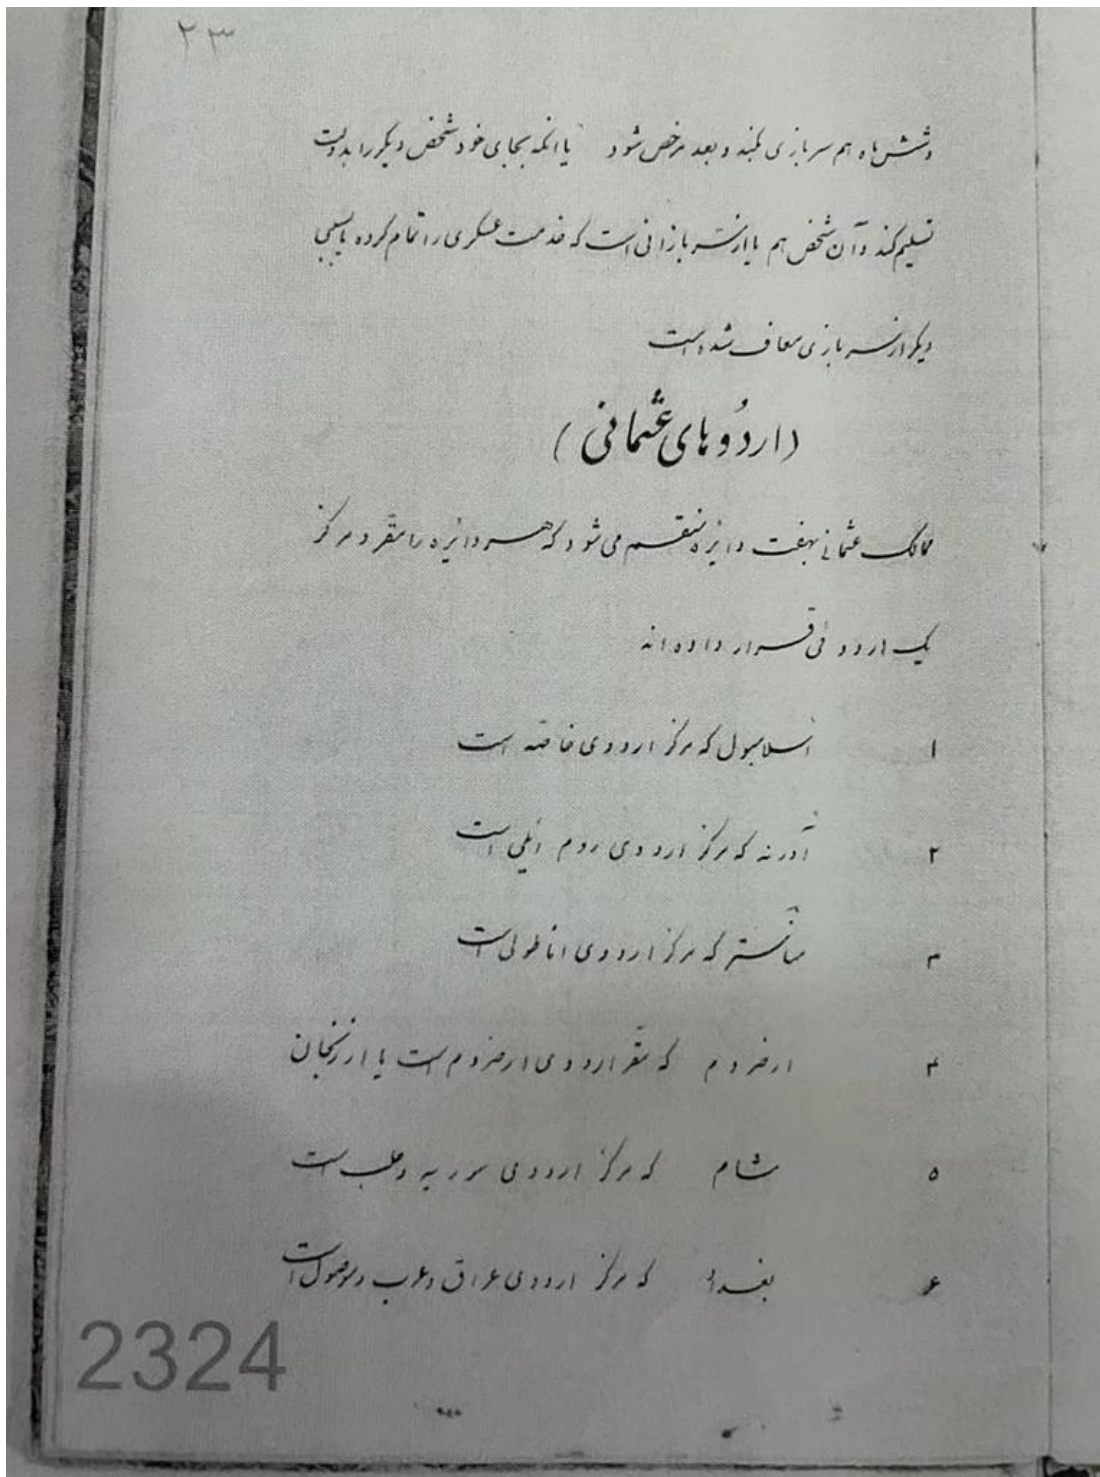 ۲۳
وشش ماه هم سربازی بکند و بعد مرخص شود یا انکه بجای خود شخص دیگر را بدولت
تسلیم کند و آن شخص هم یا از سربازانی است که خدمت عسکری را تمام کرده یا بسببی
دیگر از سربازی معاف شده است
(اردُوهای عثمانی)
ممالک عثمانی بهفت دائره منقسم می شود که هر دائره را مقر و مرکز
یک اردوئی قرار داده اند
۱ اسلامبول که مرکز اردوی خاصه است
۲ آدرنه که مرکز اردوی روم ایلی است
۳ مناستر که مرکز اردوی اناطولی است
۴ ارضروم که مقر اردوی ارضروم است یا ارزنجان
۵ شام که مرکز اردوی سوریه و حلب است
۶ بغداد که مرکز اردوی عراق و عرب و موصول است
2324